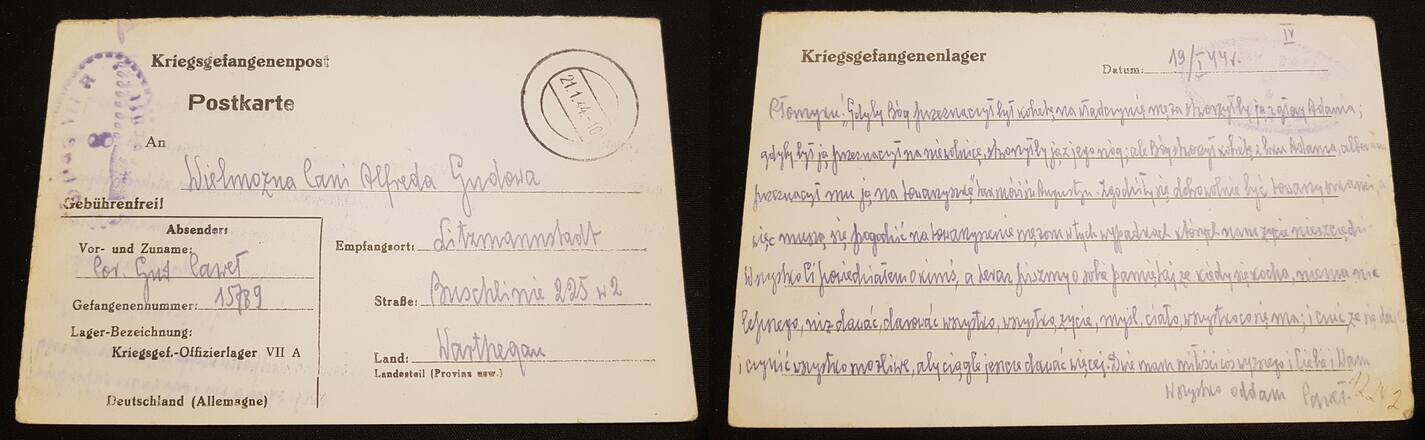 Kriegsgefangenenpost
Postkarte
21.1.44.-10
An
Wielmożna Pani Alfreda Gudowa
Gebührenfrei!
Absender:
Vor- und Zuname:
Por. Gud Paweł
Gefangenennummer: 15789
Lager-Bezeichnung:
Kriegsgef.-Offizierlager VII A
Deutschland (Allemagne)
Empfangsort: Litzmannstadt
Straße: Buschlinie 225 w 2
Land: Warthegau
Landesteil (Provinz usw.)
IV
Kriegsgefangenenlager
Datum: 19/I 44r.
Płomyku! "Gdyby Bóg przeznaczył był kobietę na władczynię męża stworzyłby ją z głowy Adama;
gdyby był ją przeznaczył na niewolnicę, stworzyłby ją z jego nóg; ale Bóg stworzył kobietę z boku Adama, albowiem
przeznaczył mu ją na towarzyszkę" tak mówi św. Augustyn. Zgodziłyście się dobrowolnie być towarzyszkami, a
więc muszą się pogodzić na towarzyszenie mężom w tych wypadkach których nam życie nieszczędzi.
Wszystko Ci powiedziałem o kimś, a teraz piszmy o sobie pamiętaj że kiedy się kocha, niema nic
lepszego, niż dawać, darować wszystko, wszystko, życie, myśl, ciało, wszystko co się ma; i czuć że się daje
i czynić wszystko możliwe, aby ciągle jeszcze dawać więcej. Dziś mam miłości i Ciebie i Wam
Wszystko oddam Paweł.